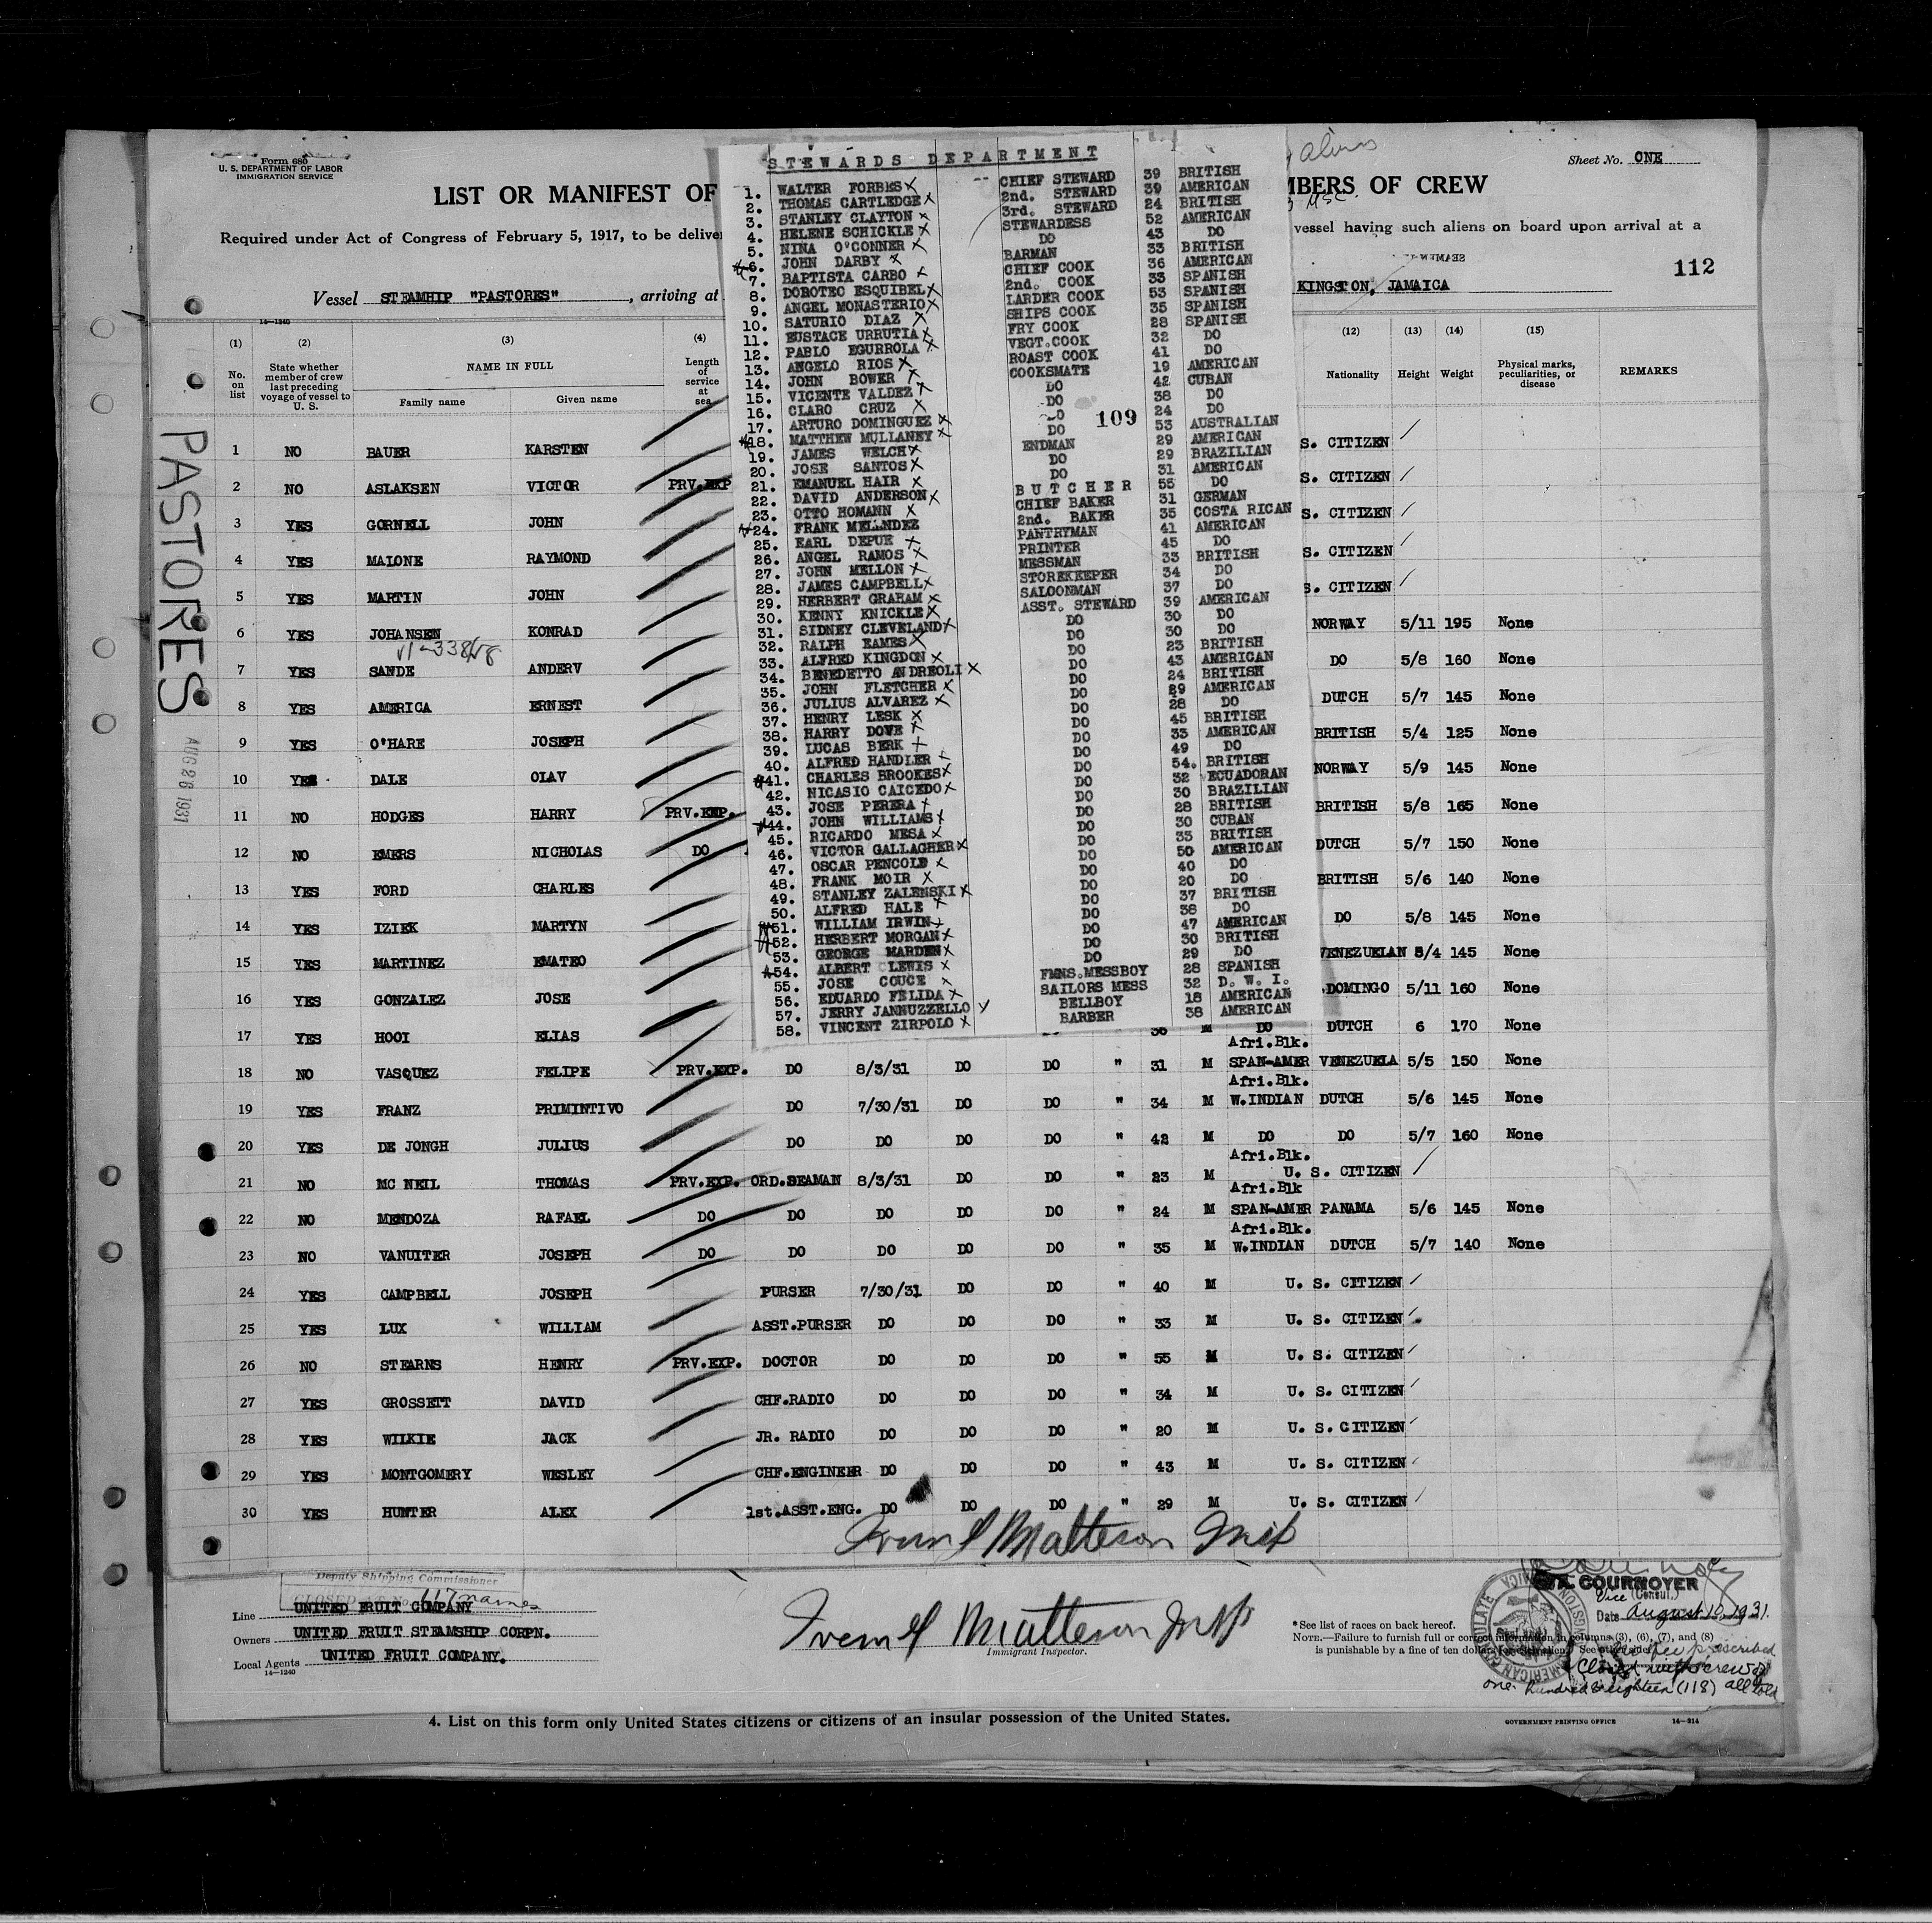 Form 680
U. S. DEPARTMENT OF LABOR
IMMIGRATION SERVICE
Sheet No. ONE
aliens
LIST OR MANIFEST OF
MBERS OF CREW
Required under Act of Congress of February 5, 1917, to be deliver
vessel having such aliens on board upon arrival at a
112
Vessel STEAMHIP "PASTORES" , arriving at
KINGSTON, JAMAICA
14—1240
(1) (2) (3) (4) (12) (13) (14) (15)
No. on list
State whether member of crew last preceding voyage of vessel to U. S.
NAME IN FULL
Family name Given name
Length of service at sea
Nationality Height Weight
Physical marks, peculiarities, or disease
REMARKS
STEWARDS DEPARTMENT
1. WALTER FORBES X CHIEF STEWARD 39 BRITISH
2. THOMAS CARTLEDGE X 2nd. STEWARD 39 AMERICAN
3. STANLEY CLAYTON X 3rd. STEWARD 24 BRITISH
4. HELENE SCHICKLE X STEWARDESS 52 AMERICAN
5. NINA O'CONNER X DO 43 DO
6. JOHN DARBY X BARMAN 33 BRITISH
7. BAPTISTA CARBO X CHIEF COOK 36 AMERICAN
8. DOROTEO ESQUIBEL X 2nd. COOK 33 SPANISH
9. ANGEL MONASTERIO X LARDER COOK 53 SPANISH
10. SATURIO DIAZ X SHIPS COOK 35 SPANISH
11. EUSTACE URRUTIA X FRY COOK 28 SPANISH
12. PABLO EGURROLA X VEGT.COOK 32 DO
13. ANGELO RIOS X ROAST COOK 41 DO
14. JOHN BOWER X COOKSMATE 19 AMERICAN
15. VICENTE VALDEZ X DO 42 CUBAN
16. CLARO CRUZ X DO 38 DO
17. ARTURO DOMINGUEZ X DO 109 24 DO
18. MATTHEW MULLANEY X DO 53 AUSTRALIAN
19. JAMES WELCH X ENDMAN 29 AMERICAN
20. JOSE SANTOS X DO 29 BRAZILIAN
21. EMANUEL HAIR X DO 31 AMERICAN
22. DAVID ANDERSON X BUTCHER 55 DO
23. OTTO HOMANN X CHIEF BAKER 31 GERMAN
24. FRANK MELANDEZ 2nd. BAKER 35 COSTA RICAN
25. EARL DEPUE X PANTRYMAN 41 AMERICAN
26. ANGEL RAMOS X PRINTER 45 DO
27. JOHN MELLON X MESSMAN 33 BRITISH
28. JAMES CAMPBELL X STOREKEEPER 34 DO
29. HERBERT GRAHAM X SALOONMAN 37 DO
30. KENNY KNICKLE X ASST. STEWARD 39 AMERICAN
31. SIDNEY CLEVELAND X DO 30 DO
32. RALPH EAMES X DO 30 DO
33. ALFRED KINGDON X DO 23 BRITISH
34. BENEDETTO ANDREOLI X DO 43 AMERICAN
35. JOHN FLETCHER X DO 24 BRITISH
36. JULIUS ALVAREZ X DO 29 AMERICAN
37. HENRY LESK X DO 28 DO
38. HARRY DOVE X DO 45 BRITISH
39. LUCAS BERK X DO 33 AMERICAN
40. ALFRED HANDLER X DO 49 DO
41. CHARLES BROOKES X DO 54. BRITISH
42. NICASIO CAICEDO X DO 32 ECUADORAN
43. JOSE PERERA X DO 30 BRAZILIAN
44. JOHN WILLIAMS X DO 28 BRITISH
45. RICARDO MESA X DO 30 CUBAN
46. VICTOR GALLAGHER X DO 33 BRITISH
47. OSCAR PENCOLE X DO 50 AMERICAN
48. FRANK MOIR X DO 40 DO
49. STANLEY ZALENSKI X DO 20 DO
50. ALFRED HALE X DO 37 BRITISH
51. WILLIAM IRWIN X DO 38 DO
52. HERBERT MORGAN X DO 47 AMERICAN
53. GEORGE MARDEN X DO 30 BRITISH
54. ALBERT LEWIS X DO 29 DO
55. JOSE COUCE X FMNS.MESSBOY 28 SPANISH
56. EDUARDO FELIDA X SAILORS MESS 32 D. W. I.
57. JERRY JANNUZZELLO X BELLBOY 18 AMERICAN
58. VINCENT ZIRPOLO X BARBER 38 AMERICAN
PASTORES
AUG 26 1931
1 NO BAUER KARSTEN S. CITIZEN
2 NO ASLAKSEN VICTOR PRV.EXP S. CITIZEN
3 YES GORNELL JOHN S. CITIZEN
4 YES MALONE RAYMOND S. CITIZEN
5 YES MARTIN JOHN S. CITIZEN
6 YES JOHANSEN KONRAD NORWAY 5/11 195 None
7 YES SANDE ANDERV DO 5/8 160 None
8 YES AMERICA ERNEST DUTCH 5/7 145 None
9 YES O'HARE JOSEPH BRITISH 5/4 125 None
10 YES DALE OLAV NORWAY 5/9 145 None
11 NO HODGES HARRY PRV.EXP. BRITISH 5/8 165 None
12 NO EMERS NICHOLAS DO DUTCH 5/7 150 None
13 YES FORD CHARLES BRITISH 5/6 140 None
14 YES IZIEK MARTYN DO 5/8 145 None
15 YES MARTINEZ EMATEO VENEZUELAN 5/4 145 None
16 YES GONZALEZ JOSE .DOMINGO 5/11 160 None
17 YES HOOI ELIAS 36 M DO DUTCH 6 170 None
Afri.Blk.
18 NO VASQUEZ FELIPE PRV.EXP. DO 8/3/31 DO DO " 31 M SPAN-AMER VENEZUELA 5/5 150 None
Afri.Blk.
19 YES FRANZ PRIMINTIVO DO 7/30/31 DO DO " 34 M W.INDIAN DUTCH 5/6 145 None
20 YES DE JONGH JULIUS DO DO DO DO " 42 M DO DO 5/7 160 None
Afri.Blk.
21 NO MC NEIL THOMAS PRV.EXP. ORD.SEAMAN 8/3/31 DO DO " 23 M U. S. CITIZEN
Afri.Blk
22 NO MENDOZA RAFAEL DO DO DO DO DO " 24 M SPAN-AMER PANAMA 5/6 145 None
Afri.Blk.
23 NO VANUITER JOSEPH DO DO DO DO DO " 35 M W.INDIAN DUTCH 5/7 140 None
24 YES CAMPBELL JOSEPH PURSER 7/30/31 DO DO " 40 M U. S. CITIZEN
25 YES LUX WILLIAM ASST.PURSER DO DO DO " 33 M U. S. CITIZEN
26 NO STEARNS HENRY PRV.EXP. DOCTOR DO DO DO " 55 M U. S. CITIZEN
27 YES GROSSETT DAVID CHF.RADIO DO DO DO " 34 M U. S. CITIZEN
28 YES WILKIE JACK JR. RADIO DO DO DO " 20 M U. S. CITIZEN
29 YES MONTGOMERY WESLEY CHF.ENGINEER DO DO DO " 43 M U. S. CITIZEN
30 YES HUNTER ALEX 1st.ASST.ENG. DO DO DO " 29 M U. S. CITIZEN
Matteson
Deputy Shipping Commissioner
CLOSED 117 names
Line UNITED FRUIT COMPANY
Owners UNITED FRUIT STEAMSHIP CORPN.
Local Agents UNITED FRUIT COMPANY.
14—1240
Matteson
Immigrant Inspector.
COURNOYER
Vice (Consul.)
Date August 10, 1931.
AMERICAN CONSULATE
*See list of races on back hereof.
NOTE.—Failure to furnish full or correct information in columns (3), (6), (7), and (8)
is punishable by a fine of ten dollars for each alien. See other side.
prescribed
Closed with crew of
one hundred & eighteen (118) all told
4. List on this form only United States citizens or citizens of an insular possession of the United States.
GOVERNMENT PRINTING OFFICE 14—314